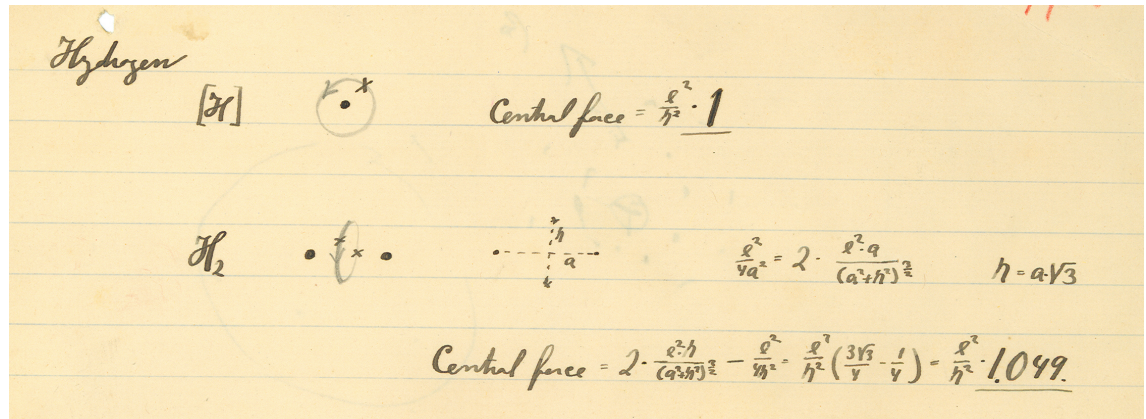 Hydrogen
[H] x Central force = e²/r² · 1
H₂ x x r a e²/4a² = 2 · e²·a/(a²+r²)^3/2 r = a·√3
Central force = 2 · e²·r/(a²+r²)^3/2 − e²/4r² = e²/r² (3√3/4 − 1/4) = e²/r² · 1.049.